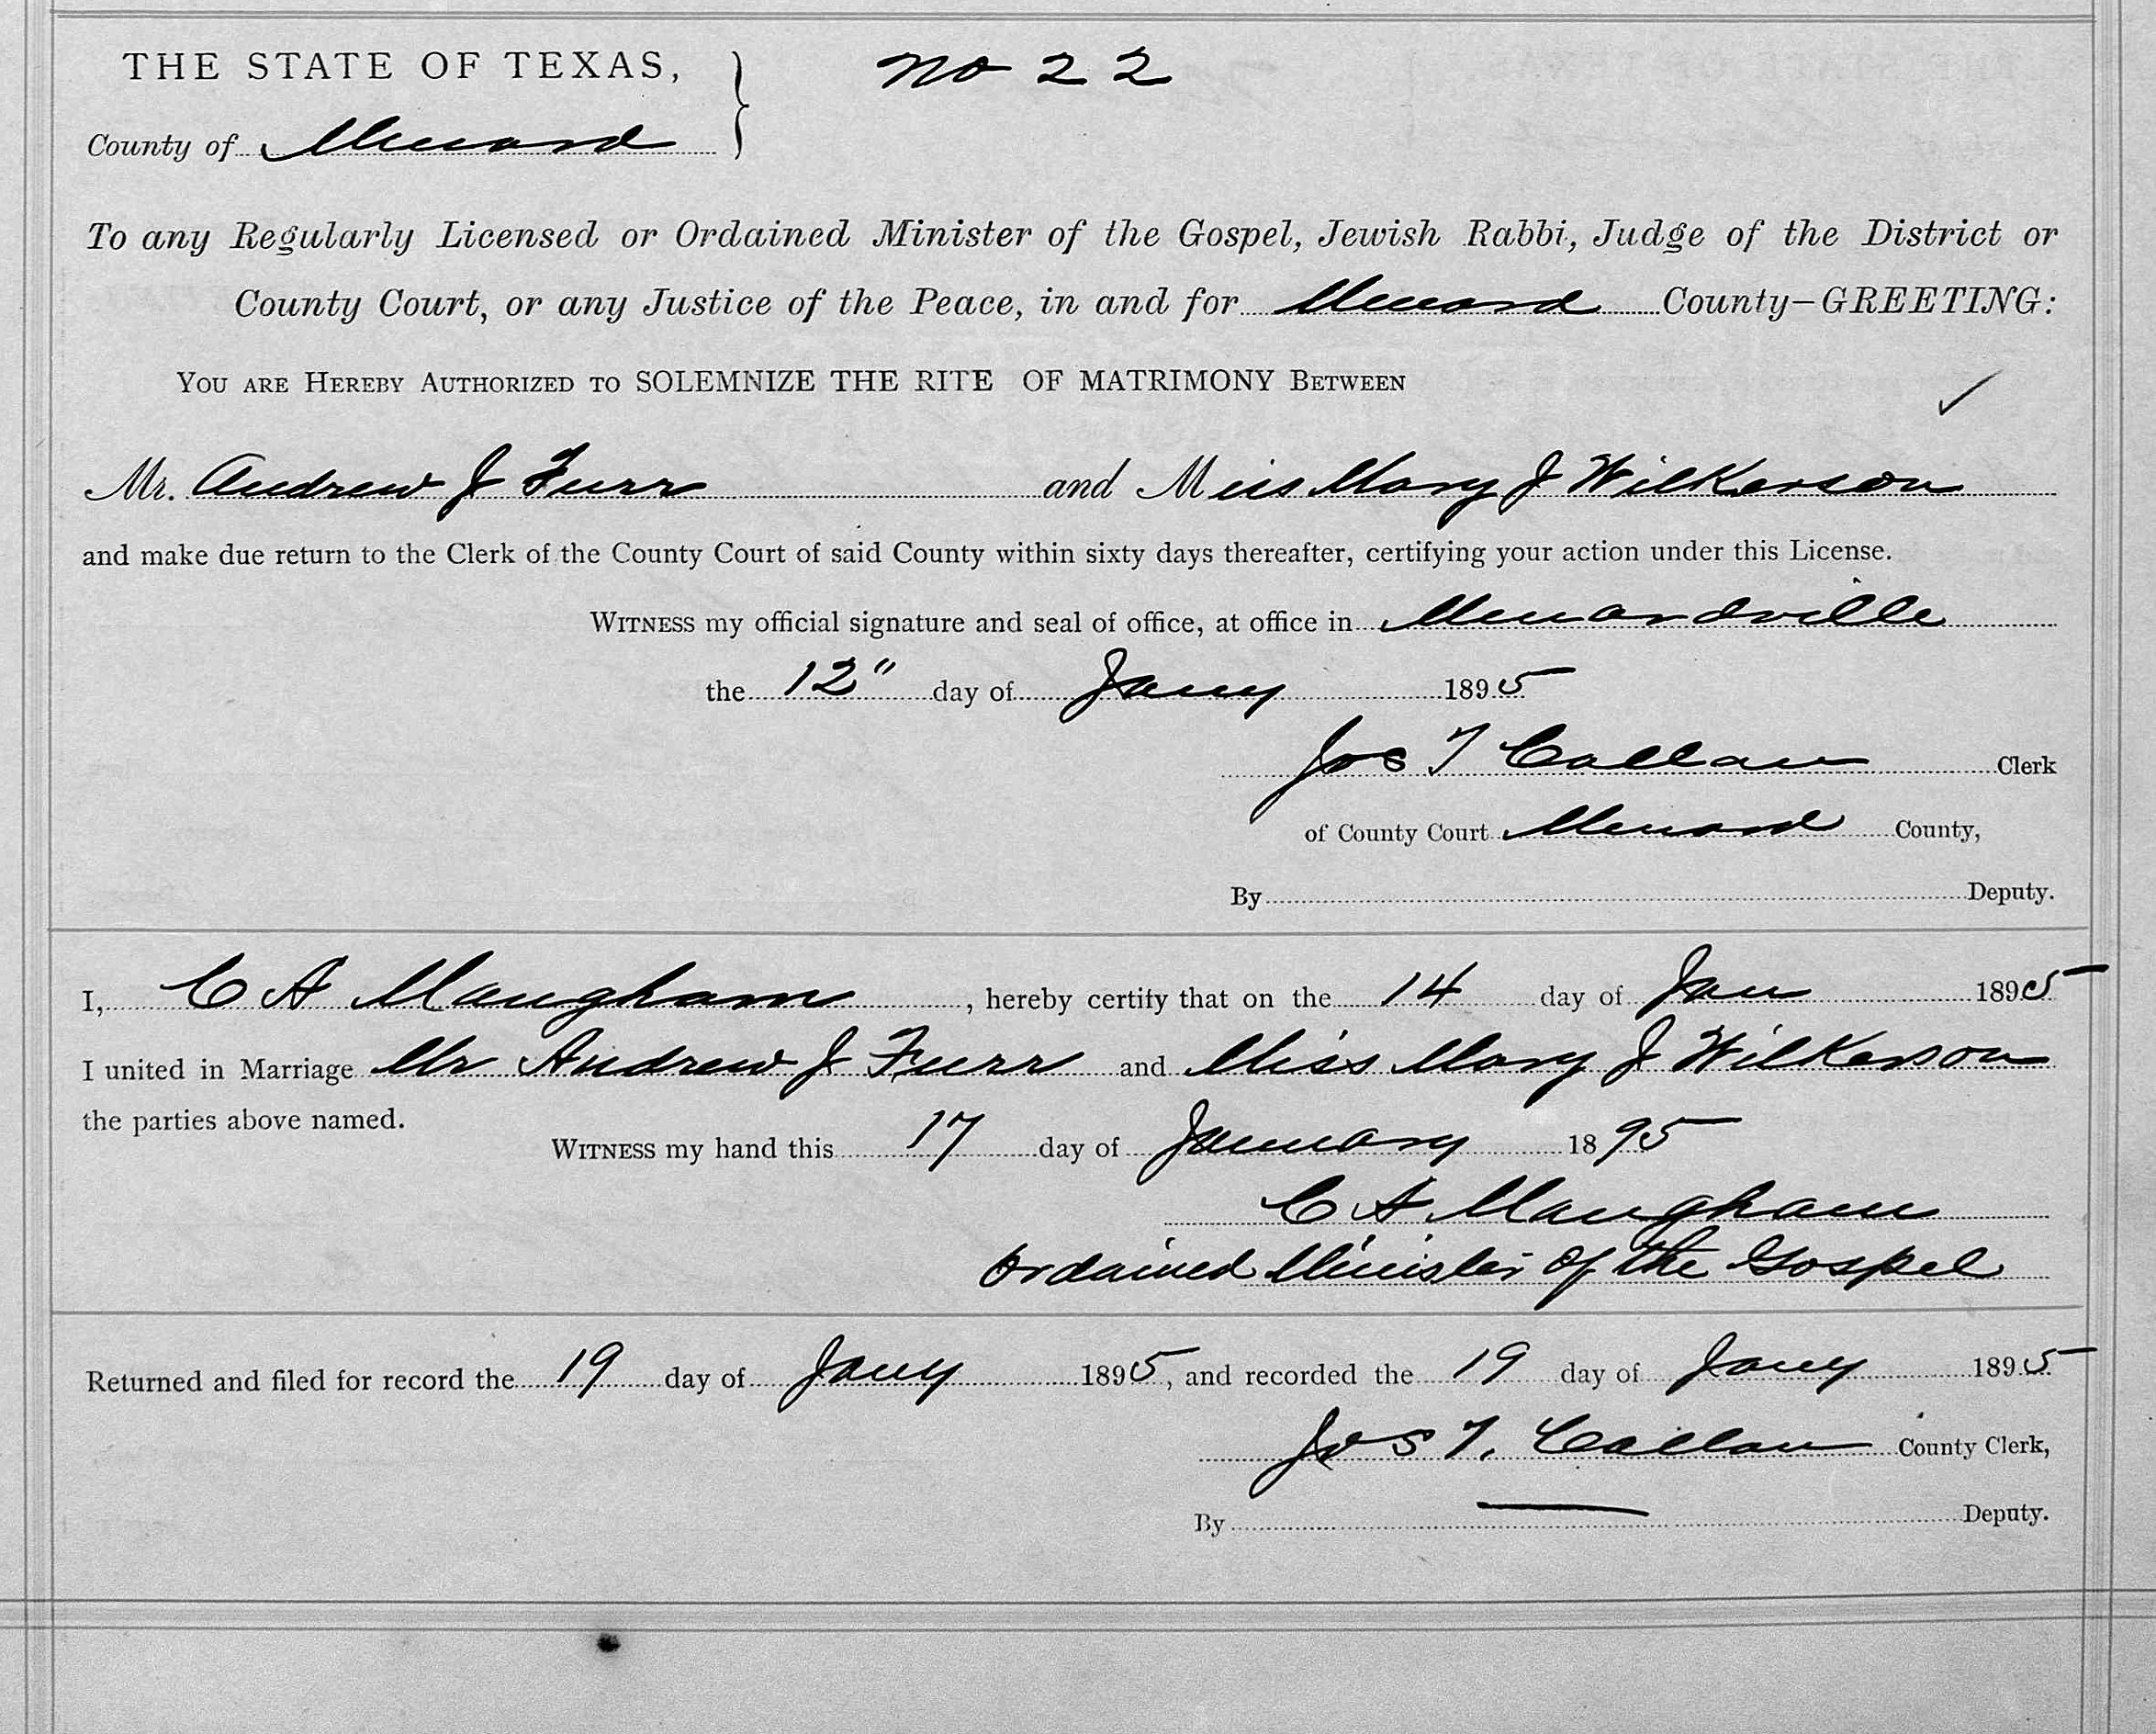 THE STATE OF TEXAS,
No 22
County of Menard
To any Regularly Licensed or Ordained Minister of the Gospel, Jewish Rabbi, Judge of the District or
County Court, or any Justice of the Peace, in and for Menard County-GREETING:
YOU ARE HEREBY AUTHORIZED TO SOLEMNIZE THE RITE OF MATRIMONY BETWEEN
Mr. Andrew J Furr and Miss Mary J Wilkerson
and make due return to the Clerk of the County Court of said County within sixty days thereafter, certifying your action under this License.
WITNESS my official signature and seal of office, at office in Menardville
the 12" day of Jany 1895
Jos T Callan Clerk
of County Court Menard County,
By Deputy.
I, C A Maugham, hereby certify that on the 14 day of Jan 1895
I united in Marriage Mr Andrew J Furr and Miss Mary J Wilkerson
the parties above named.
WITNESS my hand this 17 day of January 1895
C A Maugham
Ordained Minister of the Gospel
Returned and filed for record the 19 day of Jany 1895, and recorded the 19 day of Jany 1895
Jos T. Callan County Clerk,
By Deputy.